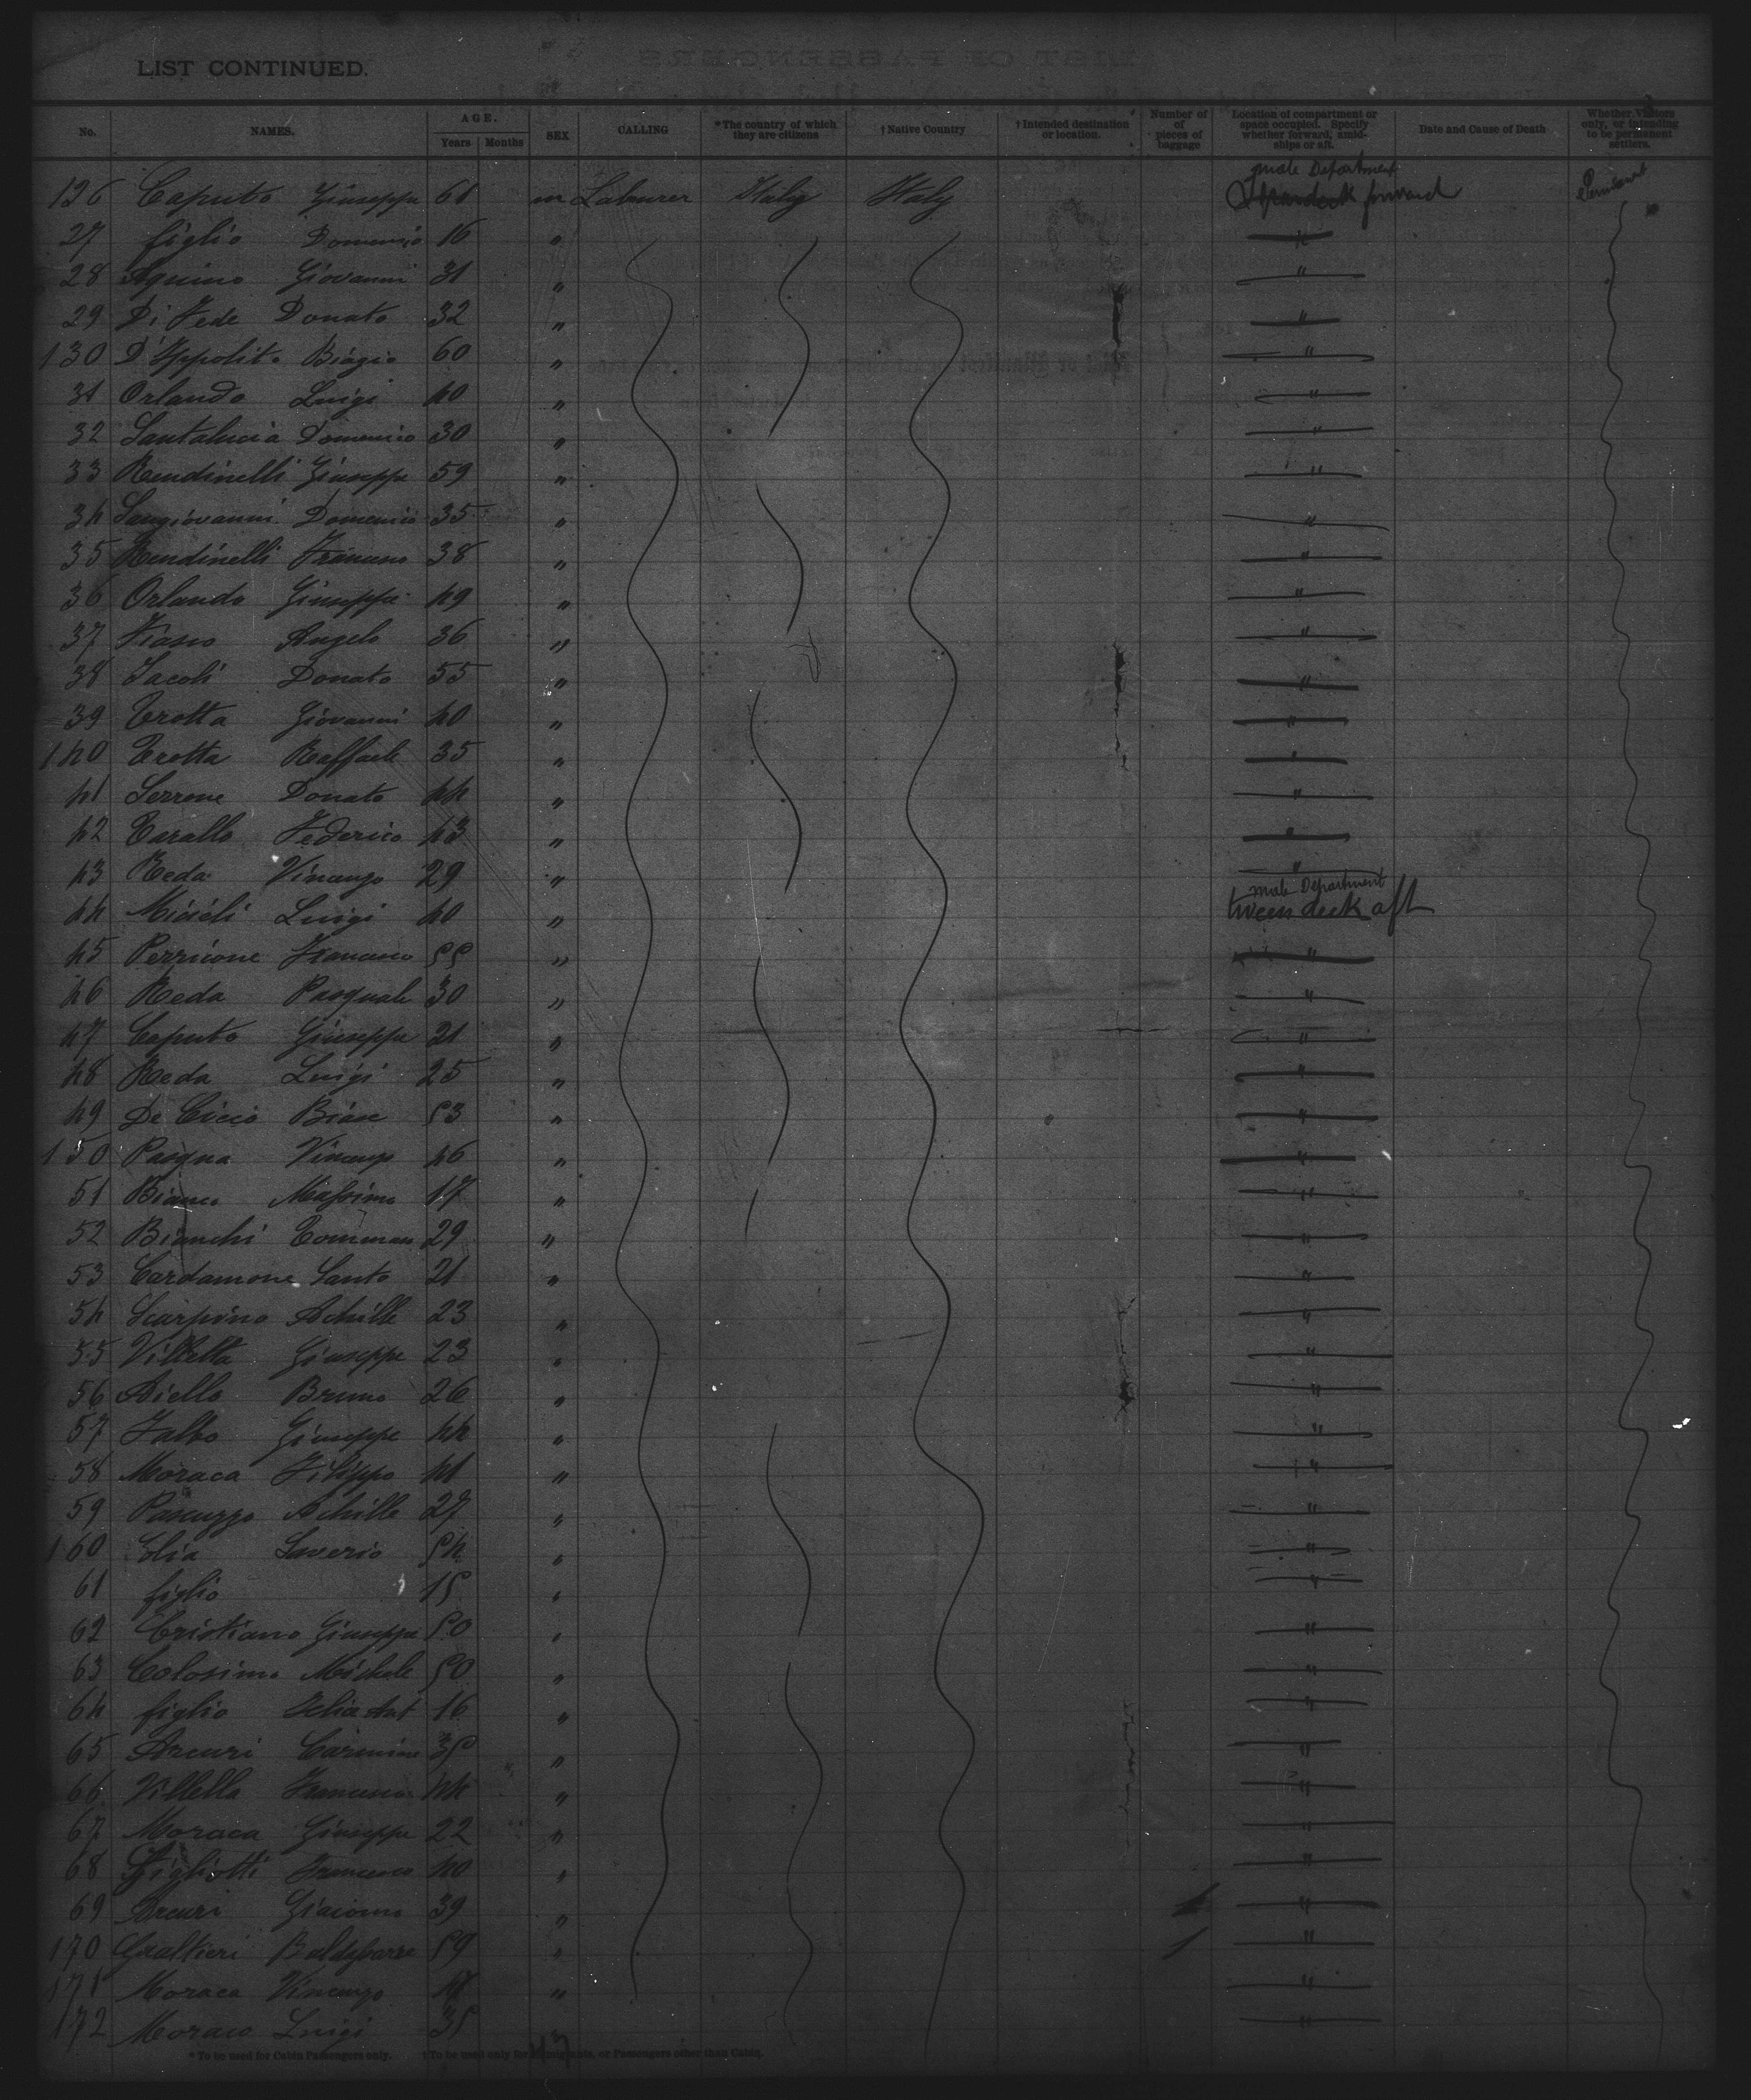 LIST CONTINUED.
No. NAMES. AGE. Years Months SEX CALLING *The country of which they are citizens †Native Country †Intended destination or location. Number of pieces of baggage Location of compartment or space occupied. Specify whether forward, amidships or aft. Date and Cause of Death Whether Visitors only, or intending to be permanent settlers.
male Department
126 Caputo Giuseppe 61 m Labourer Italy Italy forward
27 figlio Domenico 16 " "
28 Aquino Giovanni 31 " "
29 Di Fede Donato 32 " "
130 D'Ippolito Biagio 60 " "
31 Orlando Luigi 40 " "
32 Santalucia Domenico 30 " "
33 Rendinelli Giuseppe 59 " "
34 Sangiovanni Domenico 35 " "
35 Rendinelli Francesco 38 " "
36 Orlando Giuseppe 49 " "
37 Fiasco Angelo 36 " "
38 Iacoli Donato 55 " "
39 Trotta Giovanni 40 " "
140 Trotta Raffaele 35 " "
41 Serrone Donato 44 " "
42 Tarallo Federico 43 " "
43 Reda Vincenzo 29 " "
male Department
44 Miceli Luigi 40 " tween deck aft
45 Perricone Francesco 55 " "
46 Reda Pasquale 30 " "
47 Caputo Giuseppe 21 " "
48 Reda Luigi 25 " "
49 De Cicco Biase 53 " "
150 Pasqua Vincenzo 46 " "
51 Bianco Massimo 17 " "
52 Bianchi Tommaso 29 " "
53 Cardamone Santo 21 " "
54 Scarpino Achille 23 " "
55 Villella Giuseppe 23 " "
56 Aiello Bruno 26 " "
57 Falbo Giuseppe 44 " "
58 Moraca Filippo 41 " "
59 Pascuzzo Achille 27 " "
160 Elia Saverio 54 " "
61 figlio 15 " "
62 Cristiano Giuseppe 50 " "
63 Colosimo Michele 50 " "
64 figlio 16 " "
65 Arcuri Carmine 35 " "
66 Villella Francesco 44 " "
67 Moraca Giuseppe 22 " "
68 Gigliotti Francesco 40 " "
69 Arcuri Giacomo 39 " "
170 Gualtieri Baldassarre 59 " "
171 Moraca Vincenzo " "
172 Moraca Luigi 35 "
* To be used for Cabin Passengers only. † To be used only for Immigrants, or Passengers other than Cabin.